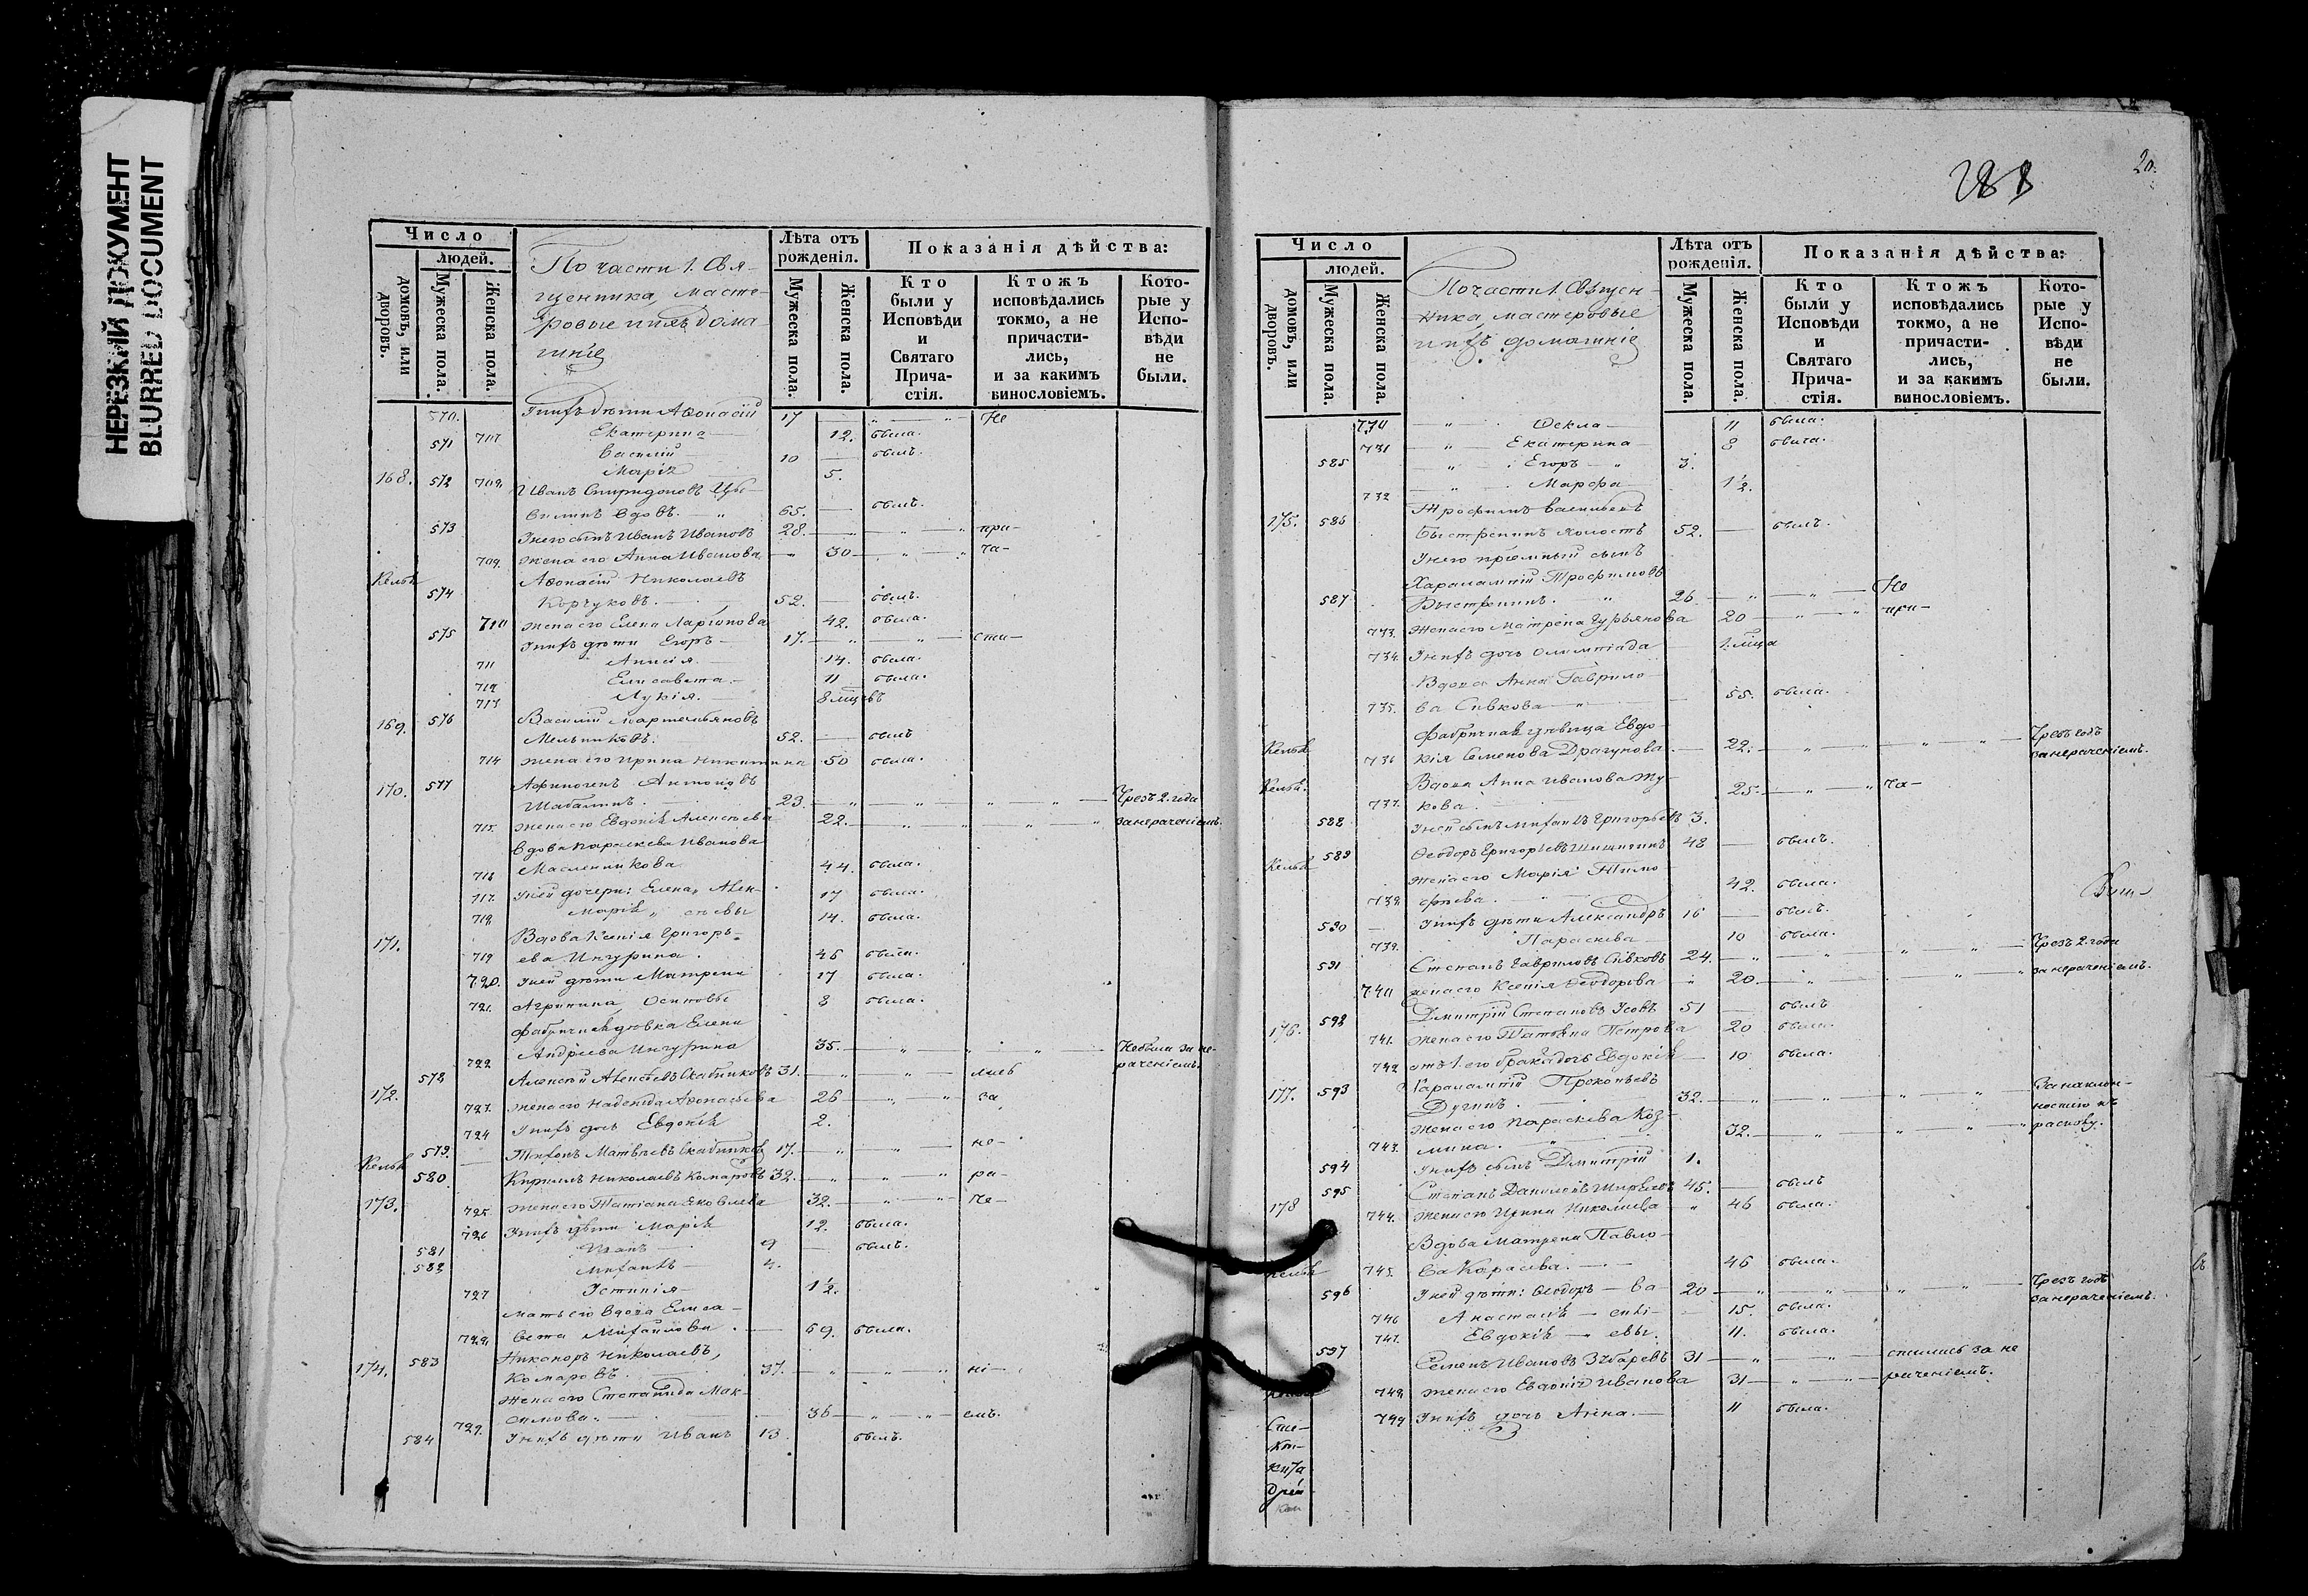 НЕРЕЗКИЙ ДОКУМЕНТ
BLURRED DOCUMENT
Число
людей.
домовъ, или дворовъ.
Мужеска пола.
Женска пола.
По части 1. Свя-
щенника, масте-
ровые и ихъ дома
шніе
Лѣта отъ рожденія.
Мужеска пола.
Женска пола.
Показанія дѣйства:
Кто были у Исповѣди и Святаго Прича- стія.
Ктожъ исповѣдались токмо, а не причасти- лись, и за какимъ винословіемъ.
Кото- рые у Испо- вѣди не были.
570. У нихъ дѣти Аѳонасій 17 — „ — Не
707 Екатерина — 12. была.
571 Василій — 10 — былъ.
708. Марія 5.
168. 572 Иванъ Спиридоновъ
вдовъ. — „ 65. — былъ.
573 У него сынъ Иванъ Ивановъ 28. — „ — „ при-
709. Жена его Анна Иванова — „ 30 — „ — „ ча-
Келья Аѳонасій Николаевъ
574 Корчуковъ. — 52. — былъ.
710 Жена его Елена Ларіонова 42. была.
575 У нихъ дѣти Егоръ — 17. — „ — „ сти-
711 Анисія — 14. была.
712 Елисавета. — 11 была.
713 Лукія. 8 мцовъ
169. 576 Василій Мартемьяновъ
Мельниковъ. 52. — былъ
714 Жена его Ирина Никитина 50 была.
170. 577 Афиногенъ Антоновъ
Шабалинъ. 23. — „ — „ — „ „ — Чрезъ 2. года
715. Жена его Евдокія Алексѣева 22. — „ — „ — „ „ за нераченіемъ.
Вдова Параскева Иванова
716 Масленникова 44. была.
717. У ней дочери: Елена, Алек- 17 была.
718. Марія „ сѣевы 14. была.
171. Вдова Ксенія Григорь-
719 ева Ингурина. 46 была.
720. У ней дѣти Матрена 17 была.
721. Агрипина Осиповы 8 была.
Фабричная дѣвка Елена
722 Андреева Ингурина 35. — „ — „ — „ — Не была за не-
раченіемъ.
172. 578 Алексѣй Алексѣевъ Скабинковъ 31. — „ — „ — лись
723. Жена его Надежда Аѳонасьева 26 — „ — „ за
724 У нихъ дочь Евдокія 2.
Келья 579. Тихонъ Матвѣевъ Скабинковъ 17. — „ — „ — не-
173. 580. Кирилъ Николаевъ Комаровъ 32. — „ — „ — ра-
725. Жена его Татіана Яковлева 32. — „ — „ — че-
726 У нихъ дѣти Марія 12. была.
581 Иванъ — 9 — былъ.
582 Михаилъ — 4.
727 Устинія — 1½.
Мать его вдова Елиса-
728. вета Михайлова. — 69. была.
174. 583 Никаноръ Николаевъ,
Комаровъ. 37. — „ — „ — ні-
Жена его Степанида Мак-
729. симова. — 36 — „ — „ — емъ.
584 У нихъ дѣти Иванъ 13 былъ.
283
20.
Число
людей.
домовъ, или дворовъ.
Мужеска пола.
Женска пола.
По части 1. Священ-
ника, мастеровые
и ихъ домашніе
Лѣта отъ рожденія.
Мужеска пола.
Женска пола.
Показанія дѣйства:
Кто были у Исповѣди и Святаго Прича- стія.
Ктожъ исповѣдались токмо, а не причасти- лись, и за какимъ винословіемъ.
Кото- рые у Испо- вѣди не были.
730 — „ — Ѳекла — 11 была.
731 — „ Екатерина — 8 была.
585 — „ Егоръ — „ 3.
732 — „ — Марфа — 1½.
175. 586 Трофимъ Васильевъ
Быстренинъ холостъ 52. — былъ.
У него пріемный сынъ
Харалампій Трофимовъ
587 Быстренинъ. „ 26. — „ — „ — Не
733. Жена его Матрена Гурьянова 20 — „ — „ при-
734. У нихъ дочь Олимпіада — 1. мца
Вдова Анна Гаврило-
735. ва Сивкова — „ — 55. была.
Келья Фабричная дѣвица Евдо-
736 кія Семенова Драгунова. — 22. — „ — „ „ — „ — Чрезъ годъ
за нераченіемъ.
Келья. Вдова Анна Иванова Жу-
737. кова. — 25. — „ — „ ча-
588 У ней сынъ Михаилъ Григорьевъ 3.
Келья 589 Ѳеодоръ Григорьевъ 48 — былъ.
Жена его Марія Тимо-
738. фѣева. — 42. была.
590 — У нихъ дѣти Александръ 16 — былъ.
739. Параскева — 10 была.
591 Степанъ Гавриловъ Сивковъ 24. — „ — „ — „ — Чрезъ 2. года
740 Жена его Ксенія Ѳеодорова „ 20. — „ — „ — „ за нераченіемъ.
176. 592 Дмитрій Степановъ Усовъ 51 — былъ
741. Жена его Татіана Петрова 20 была.
742 отъ 1. его брака дочь Евдокія — 10 была.
177. 593 Харалампій Прокопьевъ
Дугинъ. — 32. — „ — „ — „ — За наклон-
ностію къ
Жена его Параскева Коз-
743. мина. — „ — 32. — „ — „ — „ расколу.
594 У нихъ сынъ Дмитрій 1.
178 595 Степанъ Даниловъ 45. — былъ
744. Жена его Ирина Николаева — „ 46 была.
Вдова Матрена Павло-
Келья 745. ва Карасева. — 46 была.
596 У ней дѣти: Ѳеодоръ — Ва 20 — „ — „ — „ — Чрезъ годъ
за нераченіемъ.
746 Анастасія — силі- 15. была.
747. Евдокія — евы. 11. была.
597 Семенъ Ивановъ Зубаревъ 31 — „ — „ — стились за не
748. Жена его Евдокія Иванова 31 — „ — „ — раченіемъ.
749 У нихъ дочь Анна. — 11 была.